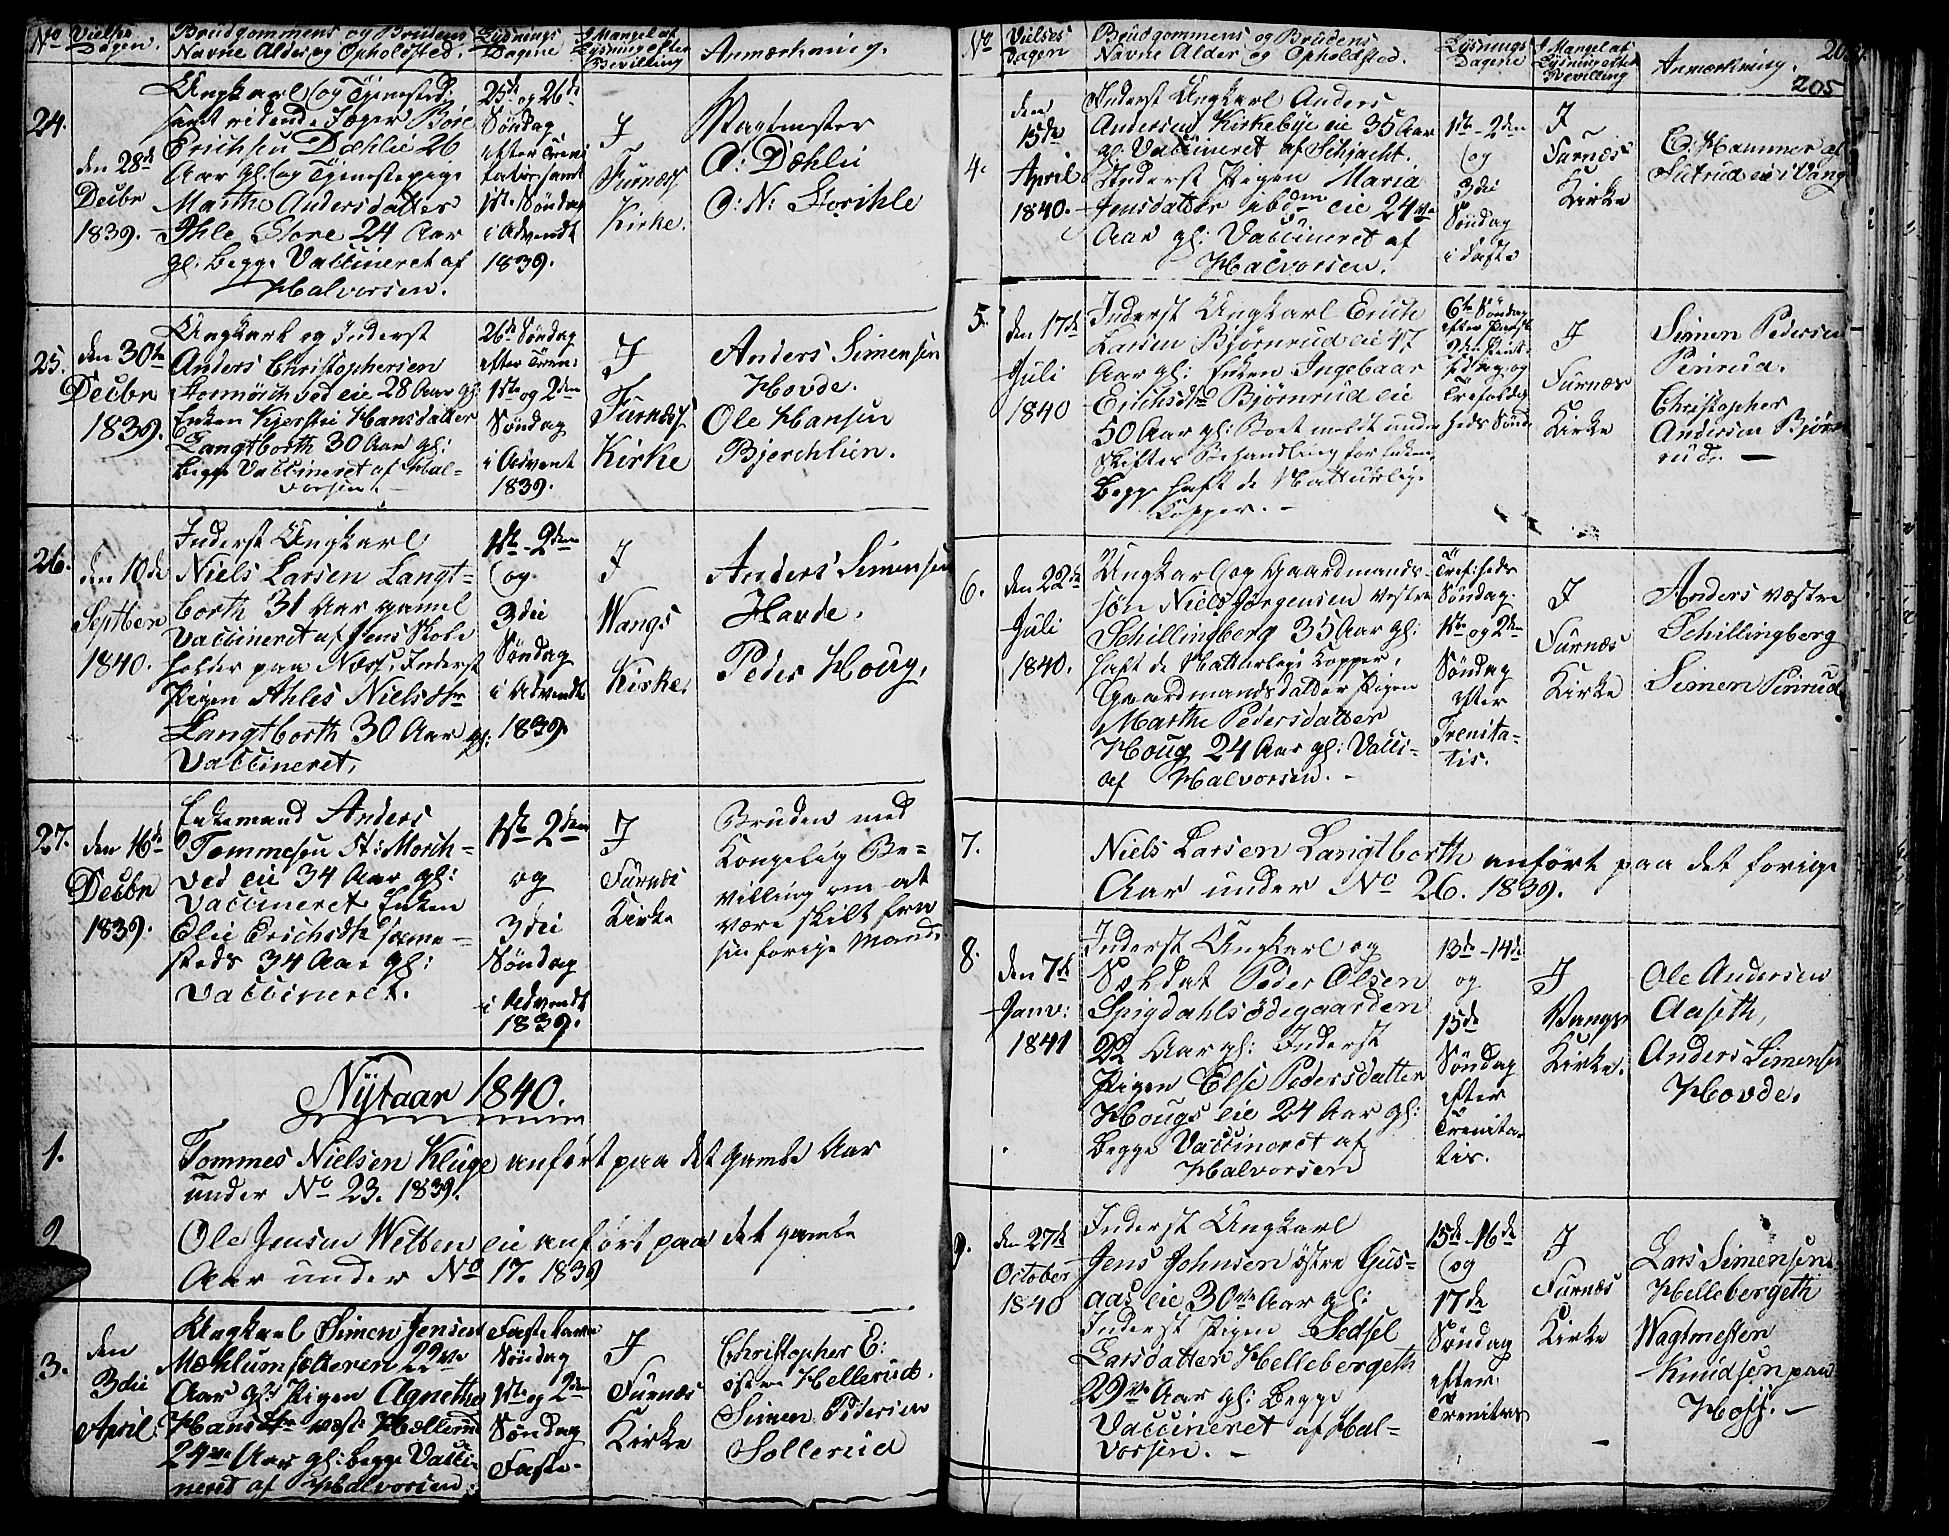 No Vielses Dagen. Brudgommens og Brudens Navne Alder og Opholdsted. Lysnings Dagene I Mangel af Lysning efter Bevilling Anmærkning.
24.
den 28de
Decbr
1839.
Ungkarl og Tjenested:
samt ridende Jæger Bore
Erichsen Dæhlie 26
Aar gl: og Tjenestepige
Marthe Andersdatter
Ihle Store 24 Aar
gl: begge Vaccineret af
Halvorsen.
25de og 26de
Søndag
efter Treni
tatis samt
1ste Søndag
i Advendt
1839.
I
Furnæs
Kirke.
Vagtmester
O: Dæhlii
O: N: Storihle
25.
den 30te
Decbr
1839.
Ungkarl og Inderst
Anders Christophersen
Stormörch ved eie 28 Aar gl:
Enken Kjersti Hansdatter
Langtborth 30 Aar gl:
begge Vaccineret af Hal-
vorsen.
26de Søndag
efter Treni:
1ste og 2den
Søndag
i Advent
1839.
I
Furnæs
Kirke
Anders Simensen
Hovde.
Ole Hansen
Bjerchlien.
26.
den 10de
Septber
1840.
Inderst Ungkarl
Niels Larsen Langt-
borth 31 Aar gamel
Vaccineret af Jens Skole
holder paa Næss: Inderst
Pigen Ahles Nielsdtr
Langtborth 30 Aar gl:
Vaccineret.
1ste 2den
og
3die
Søndag
i Advendt
1839.
I
Wangs
Kirke.
Anders Simensen
Hovde.
Peder Houg.
27.
den 16de
Decbr
1839.
Enkemand Anders
Tommesen St: Morch-
ved eie 34 Aar gl:
Vaccineret Enken
Olie Erichsdtr samme-
steds 34 Aar gl:
Vaccineret.
1ste 2den
og
3die
Søndag
i Advendt
1839.
I
Furnæs
Kirke
Bruden med
Kongelig Be-
villing om at
være skilt fra
sin forige Mand.
Nÿtaar 1840.
1.
Tommes Nielsen Kluge anført paa det gamle Aar
under No 23. 1839.
2
Ole Jensen Welten eie anført paa det gamle
Aar under No 17. 1839
3.
den
3die
April
Ungkarl Simen Jensen
Mæhlumsætteren 22ve
Aar gl: Pigen Agnethe
Hansdtr vest: Hællerud
24ve Aar gl: begge Vacci-
neret af Halvorsen.
Fastelavn
Søndag
1ste og 2den
Søndag
Faste.
I
Furnæs
Kirke
Christopher E:
østre Hellerud.
Simen Pedersen
Sollerud
No Vielses Dagen Brudgommens og Brudens Navne Alder og Opholdsted. Lysnings Dagene I Mangel af Lysning efter Bevilling Anmærkning.
205
4.
den
15de
April
1840.
Inderst Ungkarl Anders
Andersen Kirkebye eie 35 Aar
gl: Vaccineret af Schjacht.
Inderst Pigen Maria
Jensdatter ibdm eie 24ve
Aar gl: Vaccineret af
Halvorsen.
1ste 2den
og
3die
Søndag
i Faste
I
Furnæs
Kirke
C. Hammer af
Sætrud eie i Vang
5.
den 17de
Juli
1840
Inderst Ungkarl Erich
Larsen Bjørnrud eie 47
Aar gl: Enken Ingebaar
Erichsdtr Bjørnrud eie
50 Aar gl: Boet meldt under
Skiftes Behandling for Enken
begge haft de Natturlige
Copper.
6te Søndag
efter Paaske
2den Pint-
sedag og
Trefoldig
heds Sønd:
I
Furnæs
Kirke
Simen Pedersen
Pinrud.
Christopher
Andersen Bjørn
rud.
6.
den 22de
Juli
1840.
Ungkarl og Gaardmands-
søn Niels Jørgensen vestre
Schillingberg 35 Aar gl:
haft de Natturlige Copper,
Gaardmandsdatter Pigen
Marthe Pedersdatter
Houg 24 Aar gl: Vacci-
af Halvorsen.
Tref:heds
Søndag.
1ste og 2den
Søndag
efter
Trenita-
tis.
I
Furnæs
Kirke
Anders vestre
Schillingberg
Simen Pinrud
7.
Niels Larsen Langtborth anført paa det forige
Aar under No 26. 1839.
8.
den 7de
Janv:
1841
Inderst Ungkarl og
Soldat Peder Olsen
Spigdahlsødegaarden
22 Aar gl: Inderst
Pigen Else Pedersdatter
Hougs eie 24 Aar gl:
begge Vaccineret af
Halvorsen
13de 14de
og
15de
Søndag
efter
Trenita-
tis.
I
Vangs
Kirke.
Ole Andersen
Aaseth,
Anders Simensen
Hovde.
9.
den 27de
October
1840
Inderst Ungkarl
Jens Johnsen østre Gus-
aas eie 30ve Aar gl:
Inderst Pigen Sedsel
Larsdatter Hellebergeth
29ve Aar gl: begge
Vaccineret af Hal-
vorsen.
15de 16de
og
17de
Søndag
efter
Trenitas
I
Furnæs
Kirke
Lars Simensen
Hellebergeth
Wagtmesten
Knudsen paa
Hoff.